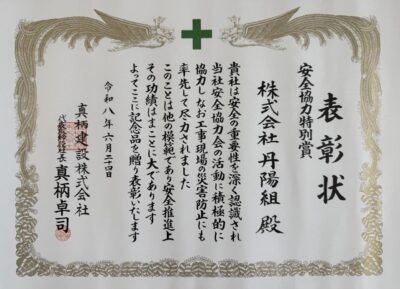 表彰状
安全協力特別賞
株式会社 丹陽組 殿
貴社は安全の重要性を深く認識され
当社安全協力会の活動に積極的に
協力しなお工事現場の災害防止にも
率先して尽力されました
このことは他の模範であり安全推進上
その功績はまことに大であります
よってここに記念品を贈り表彰いたします
令和八年六月二十日
真柄建設株式会社
代表取締役社長 真柄卓司